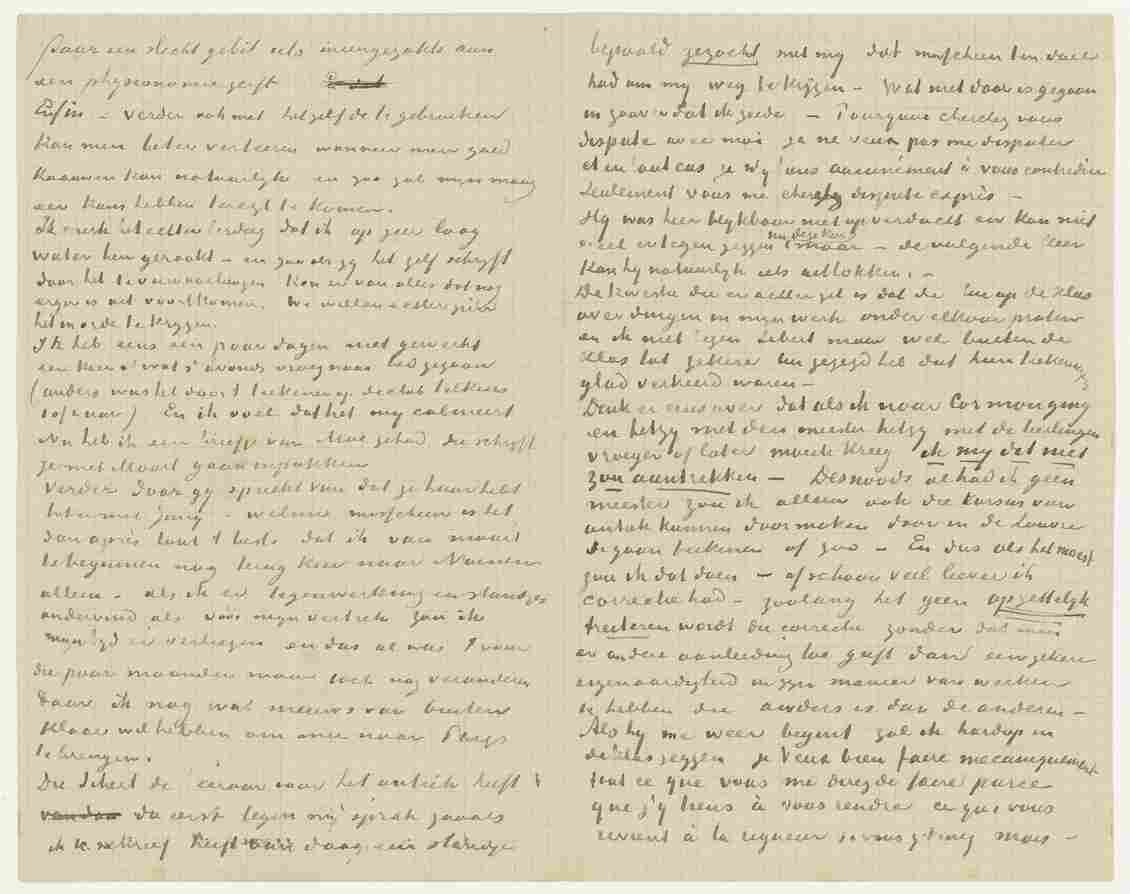 daar een slecht gebit iets ineengezakts aan
een physionomie geeft
Enfin – verder ook met hetzelfde te gebruiken
kan men beter verteeren wanneer men goed
kaauwen kan natuurlijk en zoo zal mijn maag
een kans hebben teregt te komen.
Ik merk het echter terdeeg dat ik op zeer laag
water ben geraakt – en zooals gij het zelf schrijft
door het te verwaarloozen kon er van alles dat nog
erger is uit voortkomen. We zullen echter zien
het in orde te krijgen.
Ik heb eens een paar dagen niet gewerkt
een keer of wat s'avonds vroeg naar bed gegaan
(anders was het door t teekenen op de club telkens
1 of 2 uur) En ik voel dat het my calmeert
Nu heb ik een briefje van Moe gehad, die schryft
ze met Maart gaan inpakken
Verder daar gy spreekt van dat je huur hebt
tot einde Juny – welnu misschien is het
dan après tout t beste dat ik van maart
te beginnen nog terug keer naar Nuenen
alleen – als ik er tegenwerking en standjes
ondervind als vóór myn vertrek zou ik
myn tyd er verliezen en dus al was t voor
die paar maanden maar toch nog veranderen
Daar ik nog wat nieuws van buiten
klaar wil hebben om mee naar Parys
te brengen.
Die Sibert de leeraar voor het antiek heeft
van daa die eerst tegen my sprak zooals
ik U schreef heeft van daag een standje
bepaald gezocht met my dat misschien ten doel
had om my weg te krijgen – Wat niet door is gegaan
in zoover dat ik zeide – Pourquoi cherchez vous
dispute avec moi je ne veux pas me disputer
et en tout cas je n'y tiens aucunément à vous contredire
seulement vous me cherchez dispute exprès –
Hy was hier blykbaar niet op verdacht en kon niet
veel er tegen zeggen nu deze keer maar – de volgende keer
kan hy natuurlyk iets uitlokken. –
De kwestie die er achter zit is dat de lui op de klas
over dingen in myn werk onder elkaar praten
en ik niet tegen Sibert maar wel buiten de
klas tot zekere lui gezegd heb dat hun teekeningen
glad verkeerd waren –
Denk er eens over dat als ik naar Cormon ging
en hetzy met den meester hetzy met de leerlingen
vroeger of later moeite kreeg ik my dat niet
zou aantrekken – Desnoods al had ik geen
meester zou ik alleen ook die kursus van
antiek kunnen doormaken door in de Louvre
te gaan teekenen of zoo – En dus als het moest
zou ik dat doen – ofschoon veel liever ik
correctie had – zoolang het geen opzettelyk
treiteren wordt die correctie zonder dat men
er andere aanleiding toe geeft dan een zekere
eigenaardigheid in zyn manier van werken
te hebben die anders is dan de anderen –
Als hy me weer begint zal ik hardop in
de klas zeggen je veux bien faire mecaniquement
tout ce que vous me direz de faire parce
que j'y tiens à vous rendre ce qui vous
revient à la rigueur si vous y tenez mais –